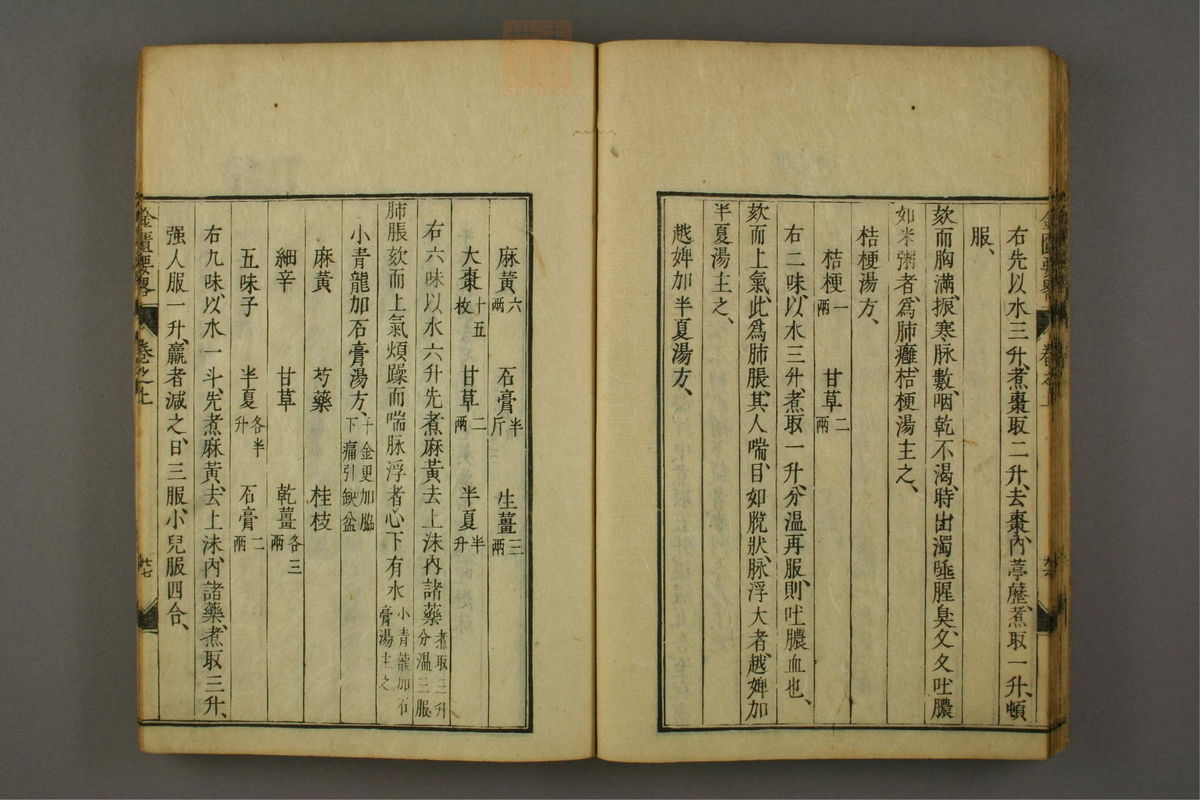 右先以水三升、煮棗取二升、去棗、內葶藶、煮取一升、頓
服、
欬而胸滿、振寒脉數、咽乾不渴、時出濁唾腥臭、久久吐膿
如米粥者、爲肺癰、桔梗湯主之、
桔梗湯方、
桔梗一兩 甘草二兩
右二味、以水三升、煮取一升、分溫再服、則吐膿血也、
欬而上氣、此爲肺脹、其人喘、目如脫狀、脉浮大者、越婢加
半夏湯主之、
越婢加半夏湯方、
麻黃六兩 石膏半斤 生薑三兩
大棗十五枚 甘草二兩 半夏半升
右六味以水六升先煮麻黃去上沫內諸藥煮取三升分溫三服
肺脹欬而上氣煩躁而喘脉浮者心下有水小青龍加石膏湯主之
小青龍加石膏湯方、千金更加脇下痛引缺盆
麻黃 芍藥 桂枝
細辛 甘草 乾薑各三兩
五味子 半夏各半升 石膏二兩
右九味、以水一斗、先煮麻黃、去上沫、內諸藥、煮取三升、
强人服一升、羸者減之、日三服、小兒服四合、
金匱要畧 卷之上 廿七